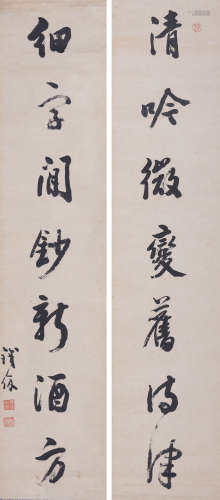 清吟微變舊詩律
細字閒鈔新酒方